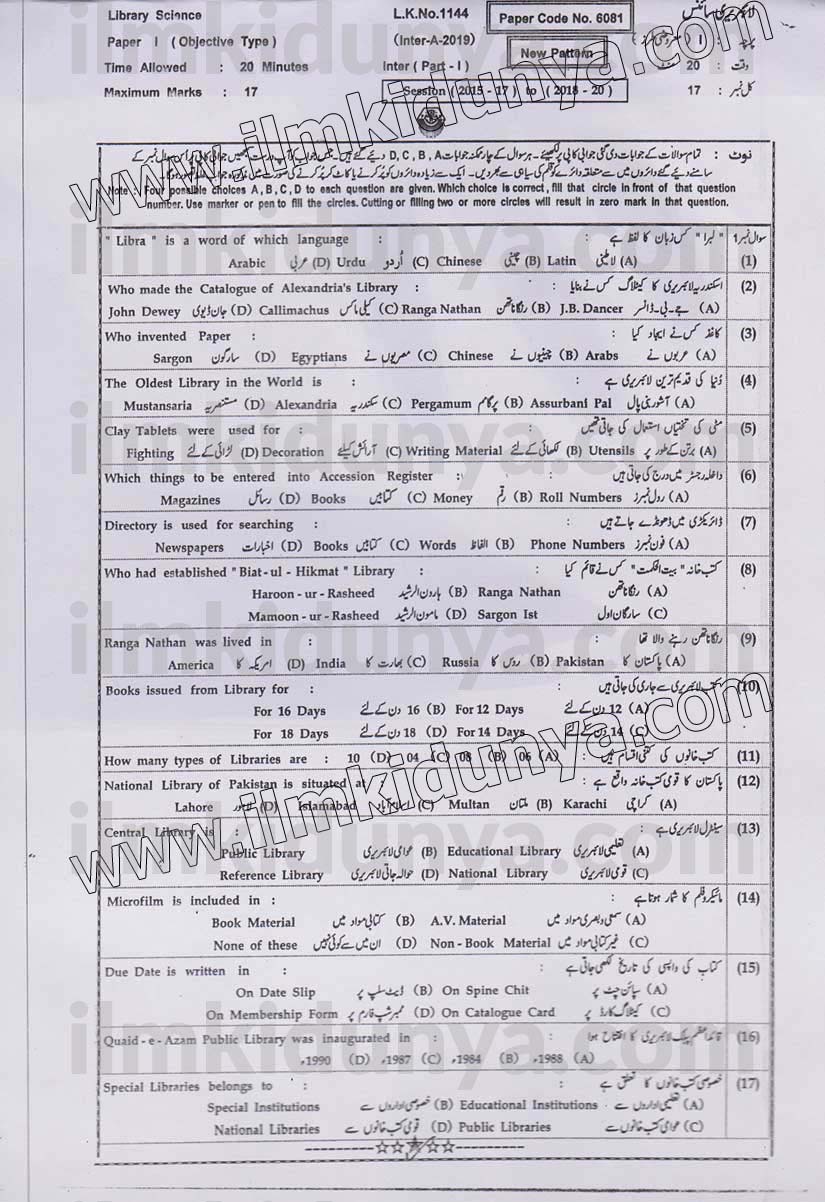 Library Science L.K.No.1144 Paper Code No. 6081 لائبریری سائنس
Paper I (Objective Type) (Inter-A-2019) New Pattern
Time Allowed : 20 Minutes Inter (Part - I) وقت : 20
Maximum Marks : 17 Session (2015 - 17) to (2018 - 20) کل نمبر : 17
Note : Four possible choices A, B, C, D to each question are given. Which choice is correct, fill that circle in front of that question
number. Use marker or pen to fill the circles. Cutting or filling two or more circles will result in zero mark in that question.
" Libra " is a word of which language : " لبرا " کس زبان کا لفظ ہے : سوال نمبر 1
Arabic عربی (D) Urdu اُردو (C) Chinese چینی (B) Latin لاطینی (A) (1)
Who made the Catalogue of Alexandria's Library : اسکندریہ لائبریری کا کیٹلاگ کس نے بنایا : (2)
John Dewey جان ڈیوی (D) Callimachus کیلی ماکس (C) Ranga Nathan رنگاناتھن (B) J.B. Dancer جے - بی - ڈانسر (A)
Who invented Paper : کاغذ کس نے ایجاد کیا : (3)
Sargon سارگون (D) Egyptians مصریوں نے (C) Chinese چینیوں نے (B) Arabs عربوں نے (A)
The Oldest Library in the World is : دُنیا کی قدیم ترین لائبریری ہے : (4)
Mustansaria مستنصریہ (D) Alexandria سکندریہ (C) Pergamum پرگامم (B) Assurbani Pal آشوربنی پال (A)
Clay Tablets were used for : مٹی کی تختیاں استعمال کی جاتی تھیں : (5)
Fighting لڑائی کے لئے (D) Decoration آرائش کیلئے (C) Writing Material لکھائی کے لئے (B) Utensils برتن کے طور پر (A)
Which things to be entered into Accession Register : داخلہ رجسٹر میں درج کی جاتی ہیں : (6)
Magazines رسائل (D) Books کتابیں (C) Money رقم (B) Roll Numbers رول نمبرز (A)
Directory is used for searching : ڈائریکٹری میں ڈھونڈے جاتے ہیں : (7)
Newspapers اخبارات (D) Books کتابیں (C) Words الفاظ (B) Phone Numbers فون نمبرز (A)
Who had established "Biat-ul-Hikmat" Library : کتب خانہ "بیت الحکمت" کس نے قائم کیا : (8)
Haroon - ur - Rasheed ہارون الرشید (B) Ranga Nathan رنگاناتھن (A)
Mamoon - ur - Rasheed مامون الرشید (D) Sargon Ist سارگان اول (C)
Ranga Nathan was lived in : رنگاناتھن رہنے والا تھا : (9)
America امریکہ کا (D) India بھارت کا (C) Russia روس کا (B) Pakistan پاکستان کا (A)
Books issued from Library for : کتب لائبریری سے جاری کی جاتی ہیں : (10)
For 16 Days 16 دن کے لئے (B) For 12 Days 12 دن کے لئے (A)
For 18 Days 18 دن کے لئے (D) For 14 Days 14 دن کے لئے (C)
How many types of Libraries are : 10 (D) 04 (C) 08 (B) 06 (A) کتب خانوں کی کتنی اقسام ہیں : (11)
National Library of Pakistan is situated at پاکستان کا قومی کتب خانہ واقع ہے : (12)
Lahore لاہور (D) Islamabad اسلام آباد (C) Multan ملتان (B) Karachi کراچی (A)
Central Library is : سینٹرل لائبریری ہے : (13)
Public Library عوامی لائبریری (B) Educational Library تعلیمی لائبریری (A)
Reference Library حوالہ جاتی لائبریری (D) National Library قومی لائبریری (C)
Microfilm is included in : مائیکروفلم کا شمار ہوتا ہے : (14)
Book Material کتابی مواد میں (B) A.V. Material سمعی و بصری مواد میں (A)
None of these ان میں سے کوئی نہیں (D) Non - Book Material غیر کتابی مواد میں (C)
Due Date is written in : کتاب کی واپسی کی تاریخ لکھی جاتی ہے : (15)
On Date Slip ڈیٹ سلپ پر (B) On Spine Chit سپائن چٹ پر (A)
On Membership Form ممبرشپ فارم پر (D) On Catalogue Card کیٹلاگ کارڈ پر (C)
Quaid - e - Azam Public Library was inaugurated in : قائداعظم پبلک لائبریری کا افتتاح ہوا : (16)
1990ء (D) 1987ء (C) 1984ء (B) 1988ء (A)
Special Libraries belongs to : خصوصی کتب خانوں کا تعلق ہے : (17)
Special Institutions خصوصی اداروں سے (B) Educational Institutions تعلیمی اداروں سے (A)
National Libraries قومی کتب خانوں سے (D) Public Libraries عوامی کتب خانوں سے (C)
www.ilmkidunya.com
www.ilmkidunya.com
ilmkidunya.com
ilmkidunya.com
ilmkidunya.com
ilmkidunya.com
ilmkidunya.com
ilmkidunya.com